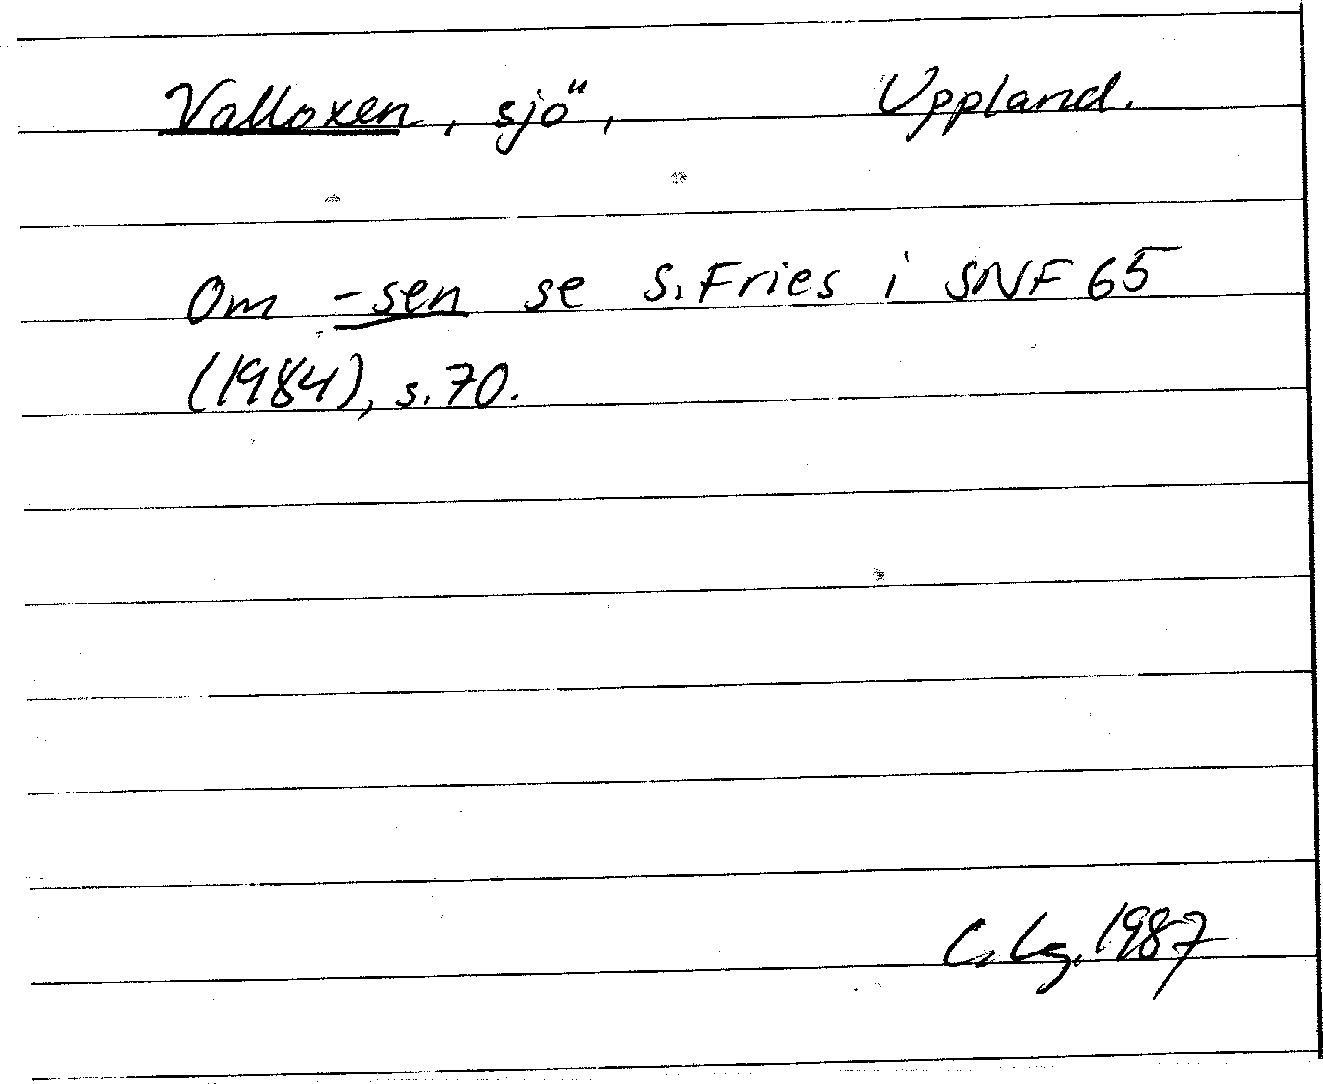 Valloxen, sjö, Uppland.
Om -sen se S. Fries i SNF 65
(1984), s. 70.
C. Lg. 1987